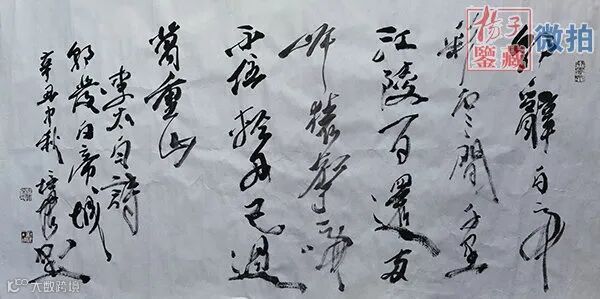 朝辭白帝
彩雲間千里
江陵一日還兩
岸猿聲啼
不住輕舟已過
萬重山
李太白詩
發白帝城
辛丑中秋
揚子
鑒藏
微拍
大数跨境